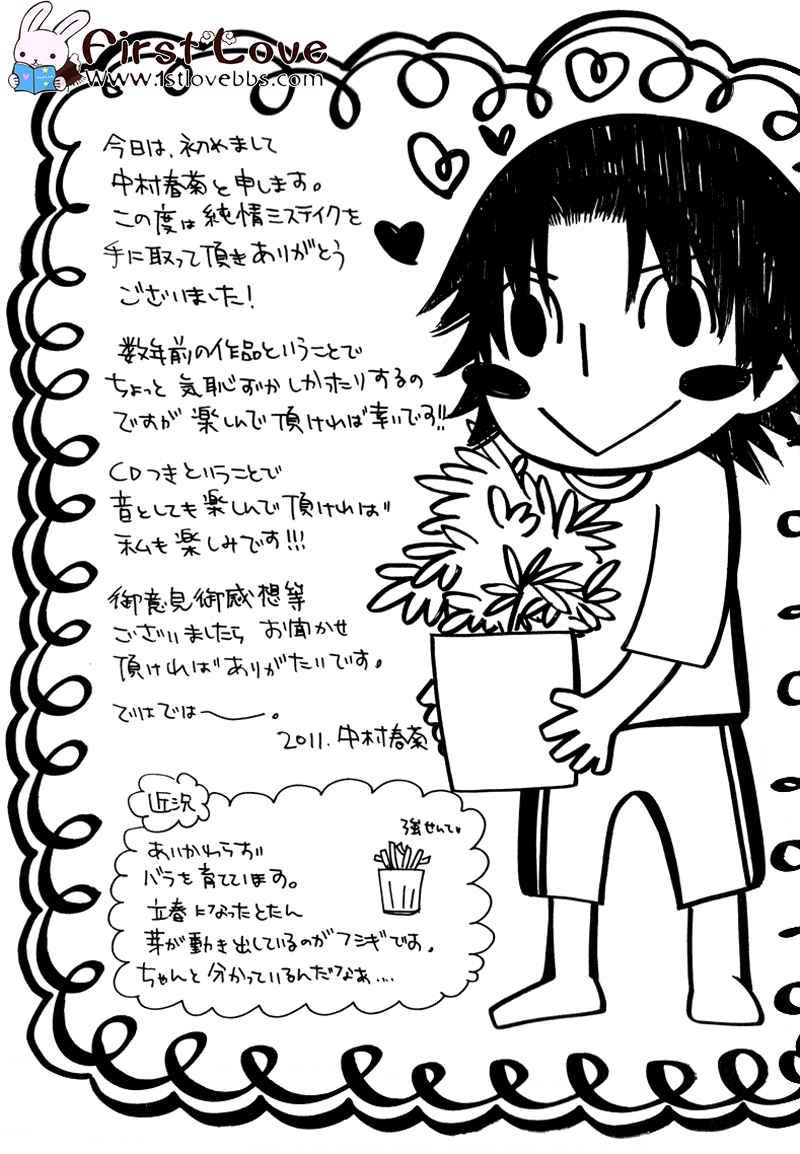 First Love
www.1stlovebbs.com
今日は、初めまして
中村春菊と申します。
この度は純情ミステイクを
手に取って頂きありがとう
ございました!
数年前の作品ということで
ちょっと気恥ずかしかったりするの
ですが楽しんで頂ければ幸いです!!
CDつきということで
音としても楽しんで頂ければ
私も楽しみです!!!
御意見御感想等
ございましたらお聞かせ
頂ければありがたいです。
ではでは〜。
2011. 中村春菊
近況
強せんてい
あいかわらず
バラを育てています。
立春になったとたん
芽が動き出しているのがフシギです。
ちゃんと分かっているんだなぁ...